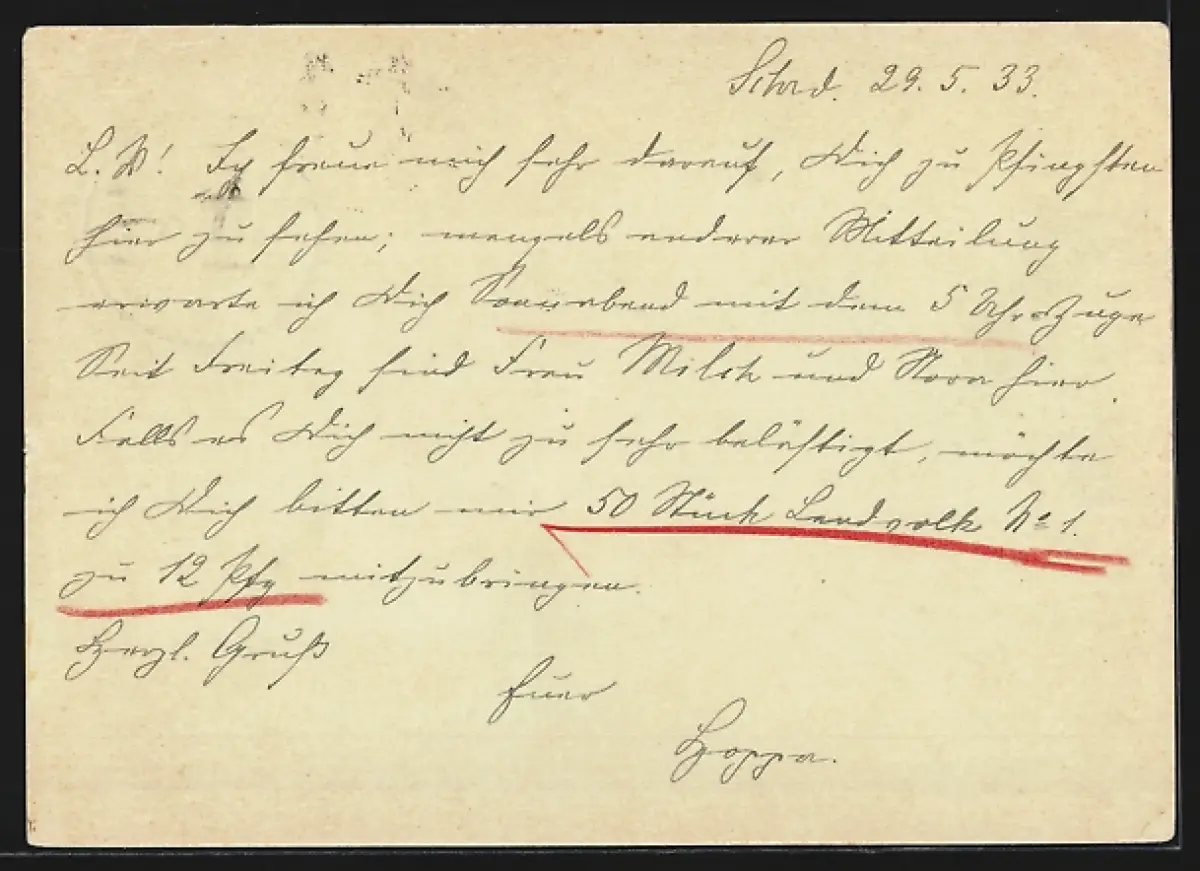 Schrd. 29.5.33.
L. W! Ich freue mich sehr darauf, Dich zu Pfingsten
hier zu sehen; mangels anderer Mitteilung
erwarte ich Dich Sonnabend mit dem 5 Uhr Zuge
Seit Freitag sind Frau Milch und Nora hier.
Falls es Dich nicht zu sehr belästigt, möchte
ich Dich bitten mir 50 Stück Landvolk No 1.
zu 12 Pfg mitzubringen.
Herzl. Gruß
Euer
Hoppa.